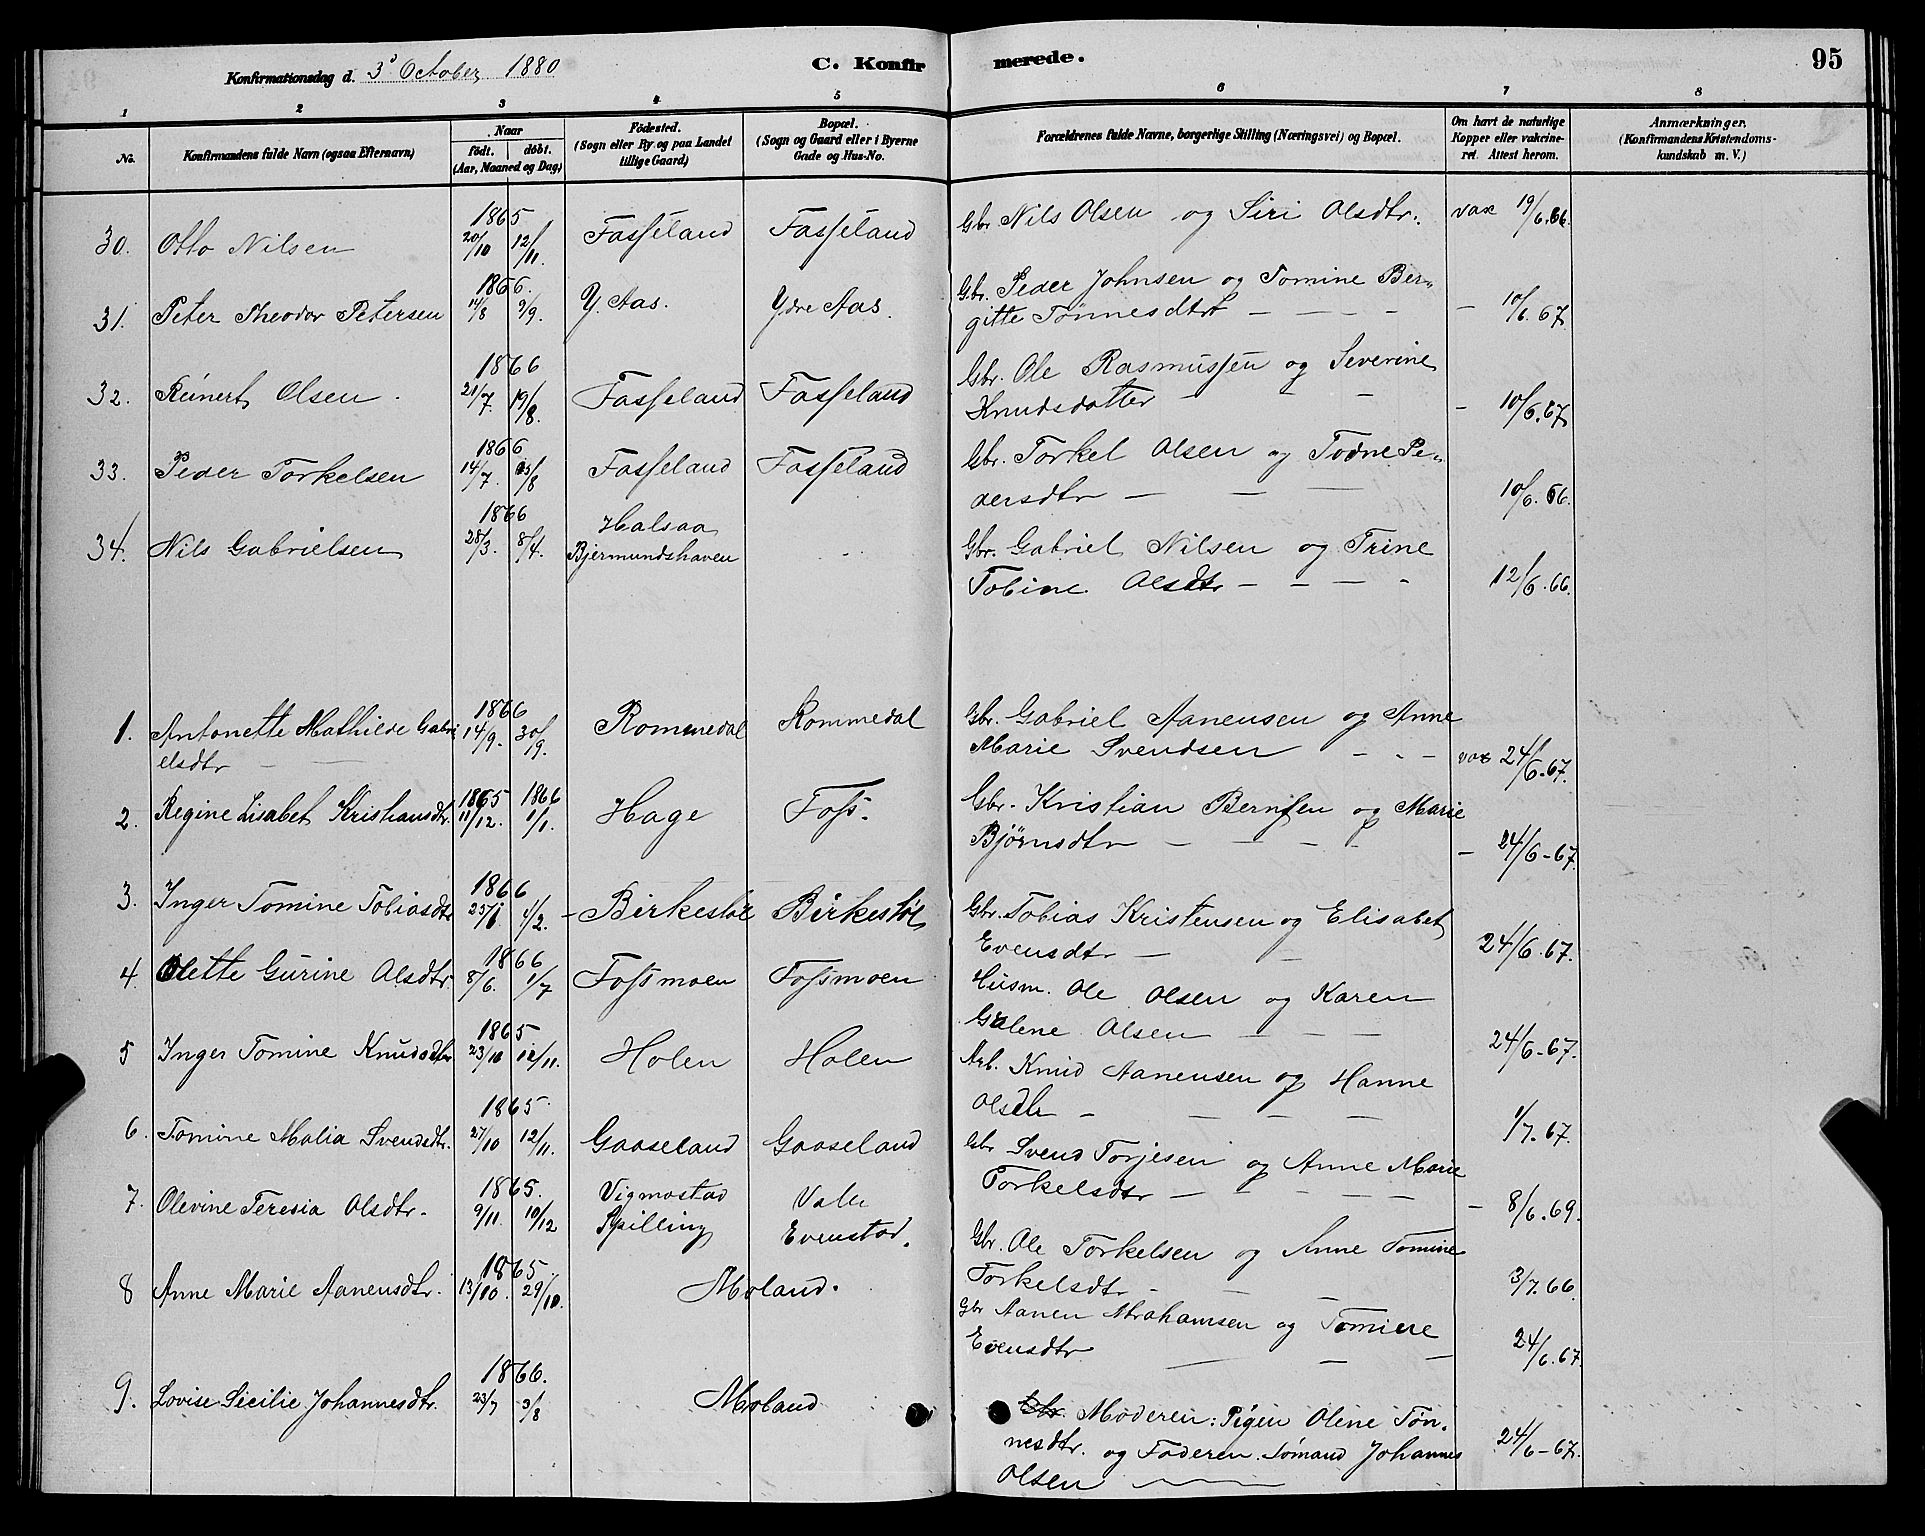 Konfirmationsdag d. 3' October 1880
C. Konfirmerede.
95
1 2 3 4 5 6 7 8
No.
Konfirmandens fulde Navn (ogsaa Efternavn)
Naar
födt. döbt.
(Aar, Maaned og Dag)
Födested.
(Sogn eller By og paa Landet
tillige Gaard)
Bopæl.
(Sogn og Gaard eller i Byerne
Gade og Hus-No.
Forældrenes fulde Navne, borgerlige Stilling (Næringsvei) og Bopæl.
Om havt de naturlige
Kopper eller vakcine-
ret. Attest herom.
Anmærkninger,
(Konfirmandens Kristendoms-
kundskab m. V.)
30. Otto Nilsen 1865 20/10 12/11. Fasseland Fasseland Gbr. Nils Olsen og Siri Olsdtr. vax 19/6.66.
31. Peter Theodor Petersen 1866. 14/8 2/9. Y. Aas. Ydre Aas. Gbr. Peder Johnsen og Tomine Ber-
gitte Tønnesdtr — 10/6.67
32. Reinert Olsen. 1866 21/7. 19/8. Fasseland Fasseland Gbr. Ole Rasmussen og Severine
Knudsdatter — 10/6.67
33. Peder Torkelsen 1866 14/7. /8 Fasseland Fasseland Gbr. Torkel Olsen og Todne Pe-
dersdtr — 10/6.66.
34. Nils Gabrielsen 1866 28/3. 8/4. Halsaa
Bjermundshaven Gbr. Gabriel Nilsen og Trine
Tobine Olsdtr — 12/6.66.
1. Antonette Mathilde Gabri
elsdtr — 1866 14/9. 30/9. Rommedal Rommedal Gbr. Gabriel Aanensen og Anne
Marie Svendsen — vax 24/6.67.
2. Regine Lisabet Kristiansdtr. 1865 11/12. 1866 1/1. Hage Foss. Gbr. Kristian Bernsen og Marie
Bjørnsdtr — 24/6-67
3. Inger Tomine Tobiasdtr 1866 25/1 4/2. Birkestøl Birkestøl Gbr. Tobias Kristensen og Elisabet
Evensdtr — 24/6.67.
4. Olette Gurine Olsdtr. 1866 8/6. 1/7 Fossmoen Fossmoen Husm. Ole Olsen og Karen
Galene Olsen — 24/6-67.
5 Inger Tomine Knudsdtr 1865 23/10 12/11. Holen Holen Arb. Knud Aanensen og Hanne
Olsdtr — 1/7.67.
6. Tomine Malia Svendsdtr. 1865. 27/10 12/11. Gaaseland Gaaseland Gbr Svend Torjesen og Anne Marie
Torkelsdtr — 8/6.69.
7. Olevine Teresia Olsdtr. 1865. 9/11. 10/12 Vigmostad
Spilling Valle
Evenstad. Gbr. Ole Torkelsen og Anne Tomine
Torkelsdtr — 3/7.66.
8 Anne Marie Aanensdtr. 1865. 13/10. 29/10. Moland. Gbr Aanen Abrahamsen og Tomine
Evensdtr — 24/6.67.
9. Lovise Sicilie Johannesdtr. 1866. 23/7 3/8 Moland Moderen: Pigen Olene Tøn-
nesdtr. og Faderen. Sømand Johannes
Olsen — 24/6-67.